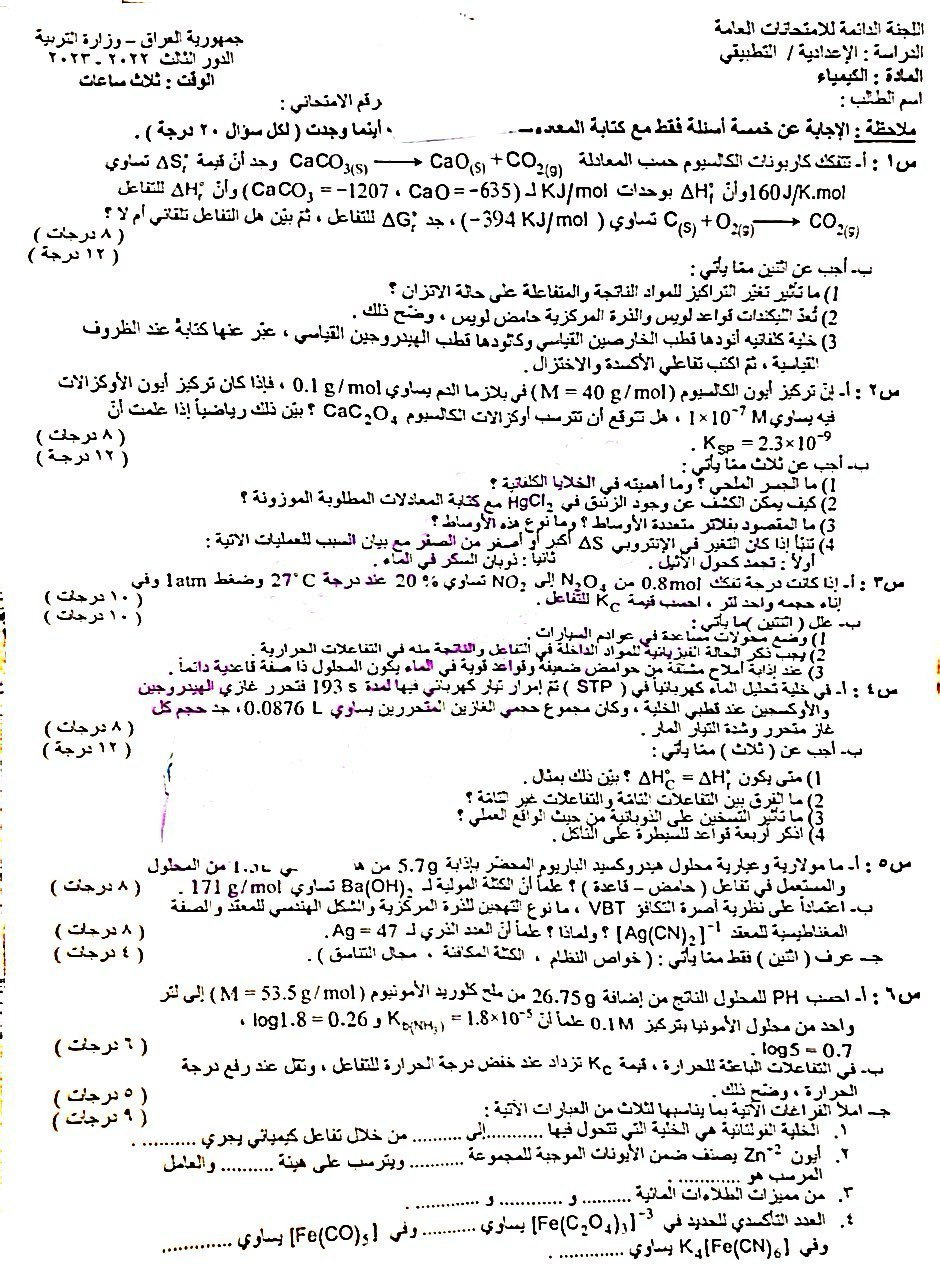 اللجنة الدائمة للامتحانات العامة
جمهورية العراق – وزارة التربية
الدراسة : الإعدادية / التطبيقي
الدور الثالث ٢٠٢٢ - ٢٠٢٣
المادة : الكيمياء
الوقت : ثلاث ساعات
اسم الطالب :
رقم الامتحاني :
ملاحظة : الإجابة عن خمسة أسئلة فقط مع كتابة المعادـ ، أينما وجدت ( لكل سؤال ٢٠ درجة ) .
س١ : أ- تتفكك كاربونات الكالسيوم حسب المعادلة CaCO3(S) ⟶ CaO(S) + CO2(g) وجد أنّ قيمة ΔS°r تساوي
160J/K.mol وأنّ ΔH°f بوحدات KJ/mol لـ (CaCO3 = −1207 ، CaO = −635) وأنّ ΔH°r للتفاعل
C(S) + O2(g) ⟶ CO2(g) تساوي ( −394 KJ/mol) ، جد ΔG°r للتفاعل ، ثمّ بيّن هل التفاعل تلقائي أم لا ؟
( ٨ درجات )
( ١٢ درجة )
ب- أجب عن اثنين ممّا يأتي :
1) ما تأثير تغيّر التراكيز للمواد الناتجة والمتفاعلة على حالة الاتزان ؟
2) تُعدّ الليكندات قواعد لويس والذرة المركزية حامض لويس ، وضّح ذلك .
3) خلية كلفانية أنودها قطب الخارصين القياسي وكاثودها قطب الهيدروجين القياسي ، عبّر عنها كتابةً عند الظروف
القياسية ، ثمّ اكتب تفاعلي الأكسدة والاختزال .
س٢ : أ- إنّ تركيز أيون الكالسيوم (M = 40 g/mol) في بلازما الدم يساوي 0.1 g/mol ، فإذا كان تركيز أيون الأوكزالات
فيه يساوي 1×10⁻⁷ M ، هل تتوقع أن تترسب أوكزالات الكالسيوم CaC2O4 ؟ بيّن ذلك رياضياً إذا علمت أنّ
KSP = 2.3×10⁻⁹ .
( ٨ درجات )
( ١٢ درجة )
ب- أجب عن ثلاث ممّا يأتي :
1) ما الجسر الملحي ؟ وما أهميته في الخلايا الكلفانية ؟
2) كيف يمكن الكشف عن وجود الزئبق في HgCl2 مع كتابة المعادلات المطلوبة الموزونة ؟
3) ما المقصود بفلاتر متعددة الأوساط ؟ وما نوع هذه الأوساط ؟
4) تنبّأ إذا كان التغير في الإنتروبي ΔS أكبر أو أصغر من الصفر مع بيان السبب للعمليات الآتية :
أولاً : تجمد كحول الأثيل . ثانياً : ذوبان السكر في الماء .
س٣ : أ- إذا كانت درجة تفكك 0.8mol من N2O4 إلى NO2 تساوي 20 % عند درجة 27°C وضغط 1atm وفي
إناء حجمه واحد لتر ، احسب قيمة KC للتفاعل .
( ١٠ درجات )
( ١٠ درجات )
ب- علل ( اثنتين ) ما يأتي :
1) وضع محولات مساعدة في عوادم السيارات .
2) يجب ذكر الحالة الفيزيائية للمواد الداخلة في التفاعل والناتجة منه في التفاعلات الحرارية .
3) عند إذابة أملاح مشتقة من حوامض ضعيفة وقواعد قوية في الماء يكون المحلول ذا صفة قاعدية دائماً .
س٤ : أ- في خلية تحليل الماء كهربائياً في ( STP ) تمّ إمرار تيار كهربائي فيها لمدة 193 s فتحرر غازي الهيدروجين
والأوكسجين عند قطبي الخلية ، وكان مجموع حجمي الغازين المتحررين يساوي 0.0876 L ، جد حجم كل
غاز متحرر وشدة التيار المار .
( ٨ درجات )
( ١٢ درجة )
ب- أجب عن ( ثلاث ) ممّا يأتي :
1) متى يكون ΔH°C = ΔH°r ؟ بيّن ذلك بمثال .
2) ما الفرق بين التفاعلات التامّة والتفاعلات غير التامّة ؟
3) ما تأثير التسخين على الذوبانية من حيث الواقع العملي ؟
4) اذكر أربعة قواعد للسيطرة على التآكل .
س٥ : أ- ما مولارية وعيارية محلول هيدروكسيد الباريوم المحضر بإذابة 5.7g من من المحلول
والمستعمل في تفاعل ( حامض – قاعدة ) ؟ علماً أنّ الكتلة المولية لـ Ba(OH)2 تساوي 171 g/mol .
( ٨ درجات )
ب- اعتماداً على نظرية آصرة التكافؤ VBT ، ما نوع التهجين للذرة المركزية والشكل الهندسي للمعقد والصفة
المغناطيسية للمعقد [Ag(CN)2]⁻¹ ؟ ولماذا ؟ علماً أنّ العدد الذري لـ Ag = 47 .
( ٨ درجات )
جـ- عرف ( اثنين ) فقط ممّا يأتي : ( خواص النظام ، الكتلة المكافئة ، مجال التناسق ) .
( ٤ درجات )
س٦ : أ- احسب PH للمحلول الناتج من إضافة 26.75 g من ملح كلوريد الأمونيوم (M = 53.5 g/mol) إلى لتر
واحد من محلول الأمونيا بتركيز 0.1M علماً أنّ Kb(NH3) = 1.8×10⁻⁵ و log1.8 = 0.26 ،
log5 = 0.7 .
( ٦ درجات )
ب- في التفاعلات الباعثة للحرارة ، قيمة KC تزداد عند خفض درجة الحرارة للتفاعل ، وتقل عند رفع درجة
الحرارة ، وضّح ذلك .
( ٥ درجات )
( ٩ درجات )
جـ- املأ الفراغات الآتية بما يناسبها لثلاث من العبارات الآتية :
١. الخلية الفولتائية هي الخلية التي تتحول فيها ..........إلى .......... من خلال تفاعل كيميائي يجري .......... .
٢. أيون Zn⁻² يصنف ضمن الأيونات الموجبة للمجموعة .......... ويترسب على هيئة .......... والعامل
المرسب هو .......... .
٣. من مميزات الطلاءات المائية .......... و .......... و .......... .
٤. العدد التأكسدي للحديد في [Fe(C2O4)3]⁻³ يساوي .......... وفي [Fe(CO)5] يساوي ..........
وفي K4[Fe(CN)6] يساوي .......... .